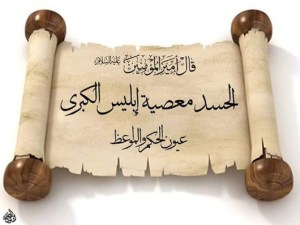 قال أمير المؤمنين عليه السلام
الحسد معصية إبليس الكبرى
عيون الحكم والمواعظ